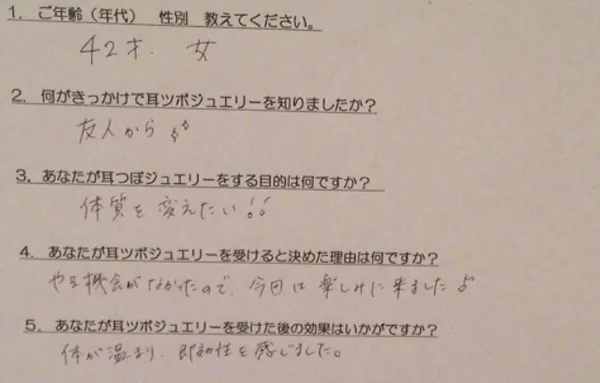 1. ご年齢（年代） 性別 教えてください。
42才. 女
2. 何がきっかけで耳ツボジュエリーを知りましたか？
友人から
3. あなたが耳つぼジュエリーをする目的は何ですか？
体質を変えたい!!
4. あなたが耳ツボジュエリーを受けると決めた理由は何ですか？
やる機会がなかったので、今日は楽しみに来ました♪
5. あなたが耳ツボジュエリーを受けた後の効果はいかがですか？
体が温まり、即効性を感じました。